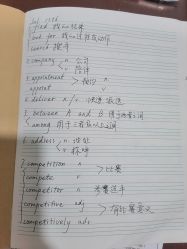 find 找到结果
look for 找的过程或动作
search 搜寻
2. company n 公司
n 陪伴
3. appointment > 预约
appoint v
4. deliver n / v
5. between A and B 两者之间
among 用于三者及以上之间
6. address n 地址
v 称呼
7. competition n > 比赛
compete v
competitor n 参赛选手
competitive adj > 有比赛意义
competitively adv